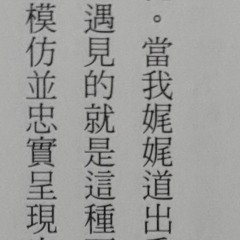 。當我娓娓道出
遇見的就是這種
模仿並忠實呈現